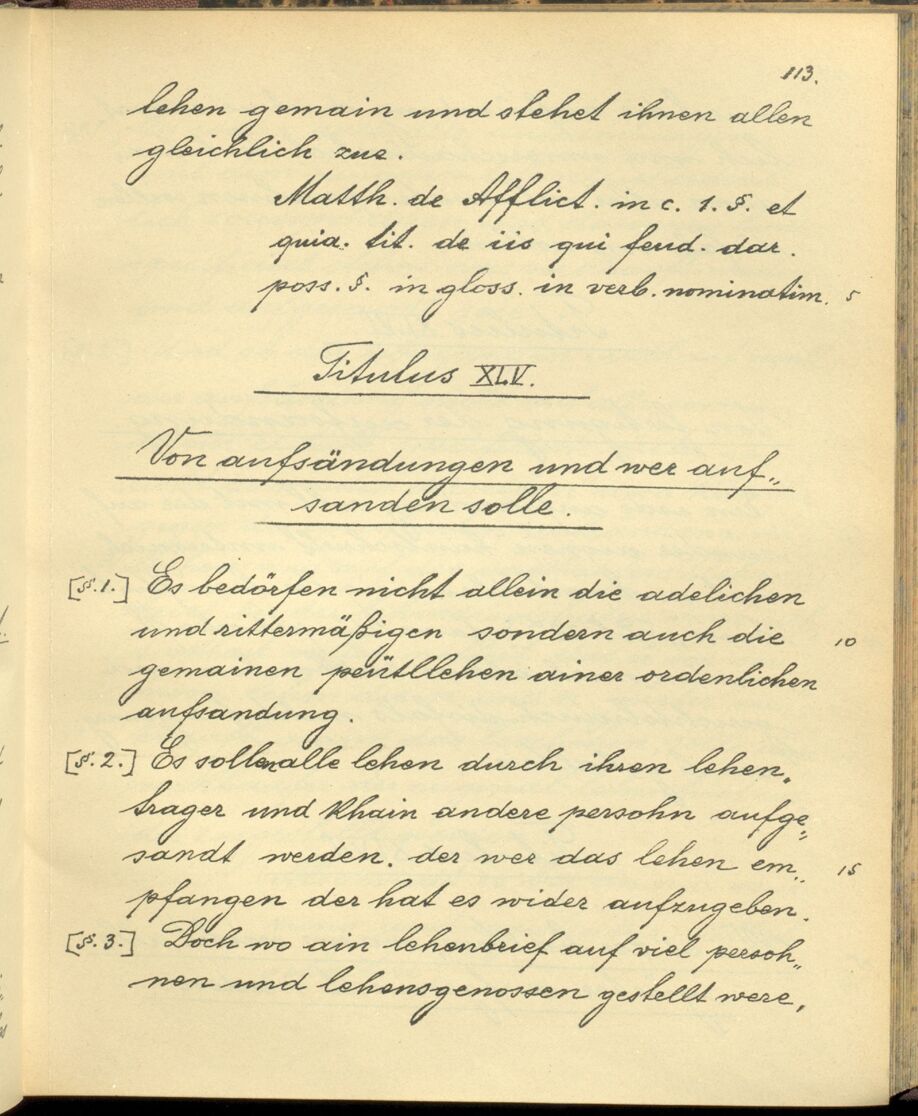 113.
lehen gemain und stehet ihnen allen
gleichlich zue.
Matth. de Afflict. in c. 1. §. et
quia. tit. de iis qui feud. dar.
poss. §. in gloss. in verb. nominatim. 5
Titulus XLV.
Von aufsändungen und wer auf„
sanden solle.
[§.1.] Es bedörfen nicht allein die adelichen
und rittermäßigen sondern auch die 10
gemainen peütllehen ainer ordenlichen
aufsandung.
[§.2.] Es sollen alle lehen durch ihren lehen„
trager und khain andere persohn aufge„
sandt werden. der wer das lehen em„ 15
pfangen der hat es wider aufzugeben.
[§.3.] Doch wo ain lehenbrief auf viel persoh„
nen und lehensgenossen gestellt were,